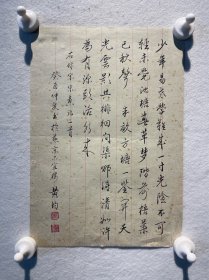 少年易老學難成一寸光陰不可
輕未覺池塘春草夢階前梧葉
已秋聲 半畝方塘一鑒開天
光雲影共徘徊問渠那得清如許
為有源頭活水來
右錄宋朱熹詩二首
癸酉仲夏書於